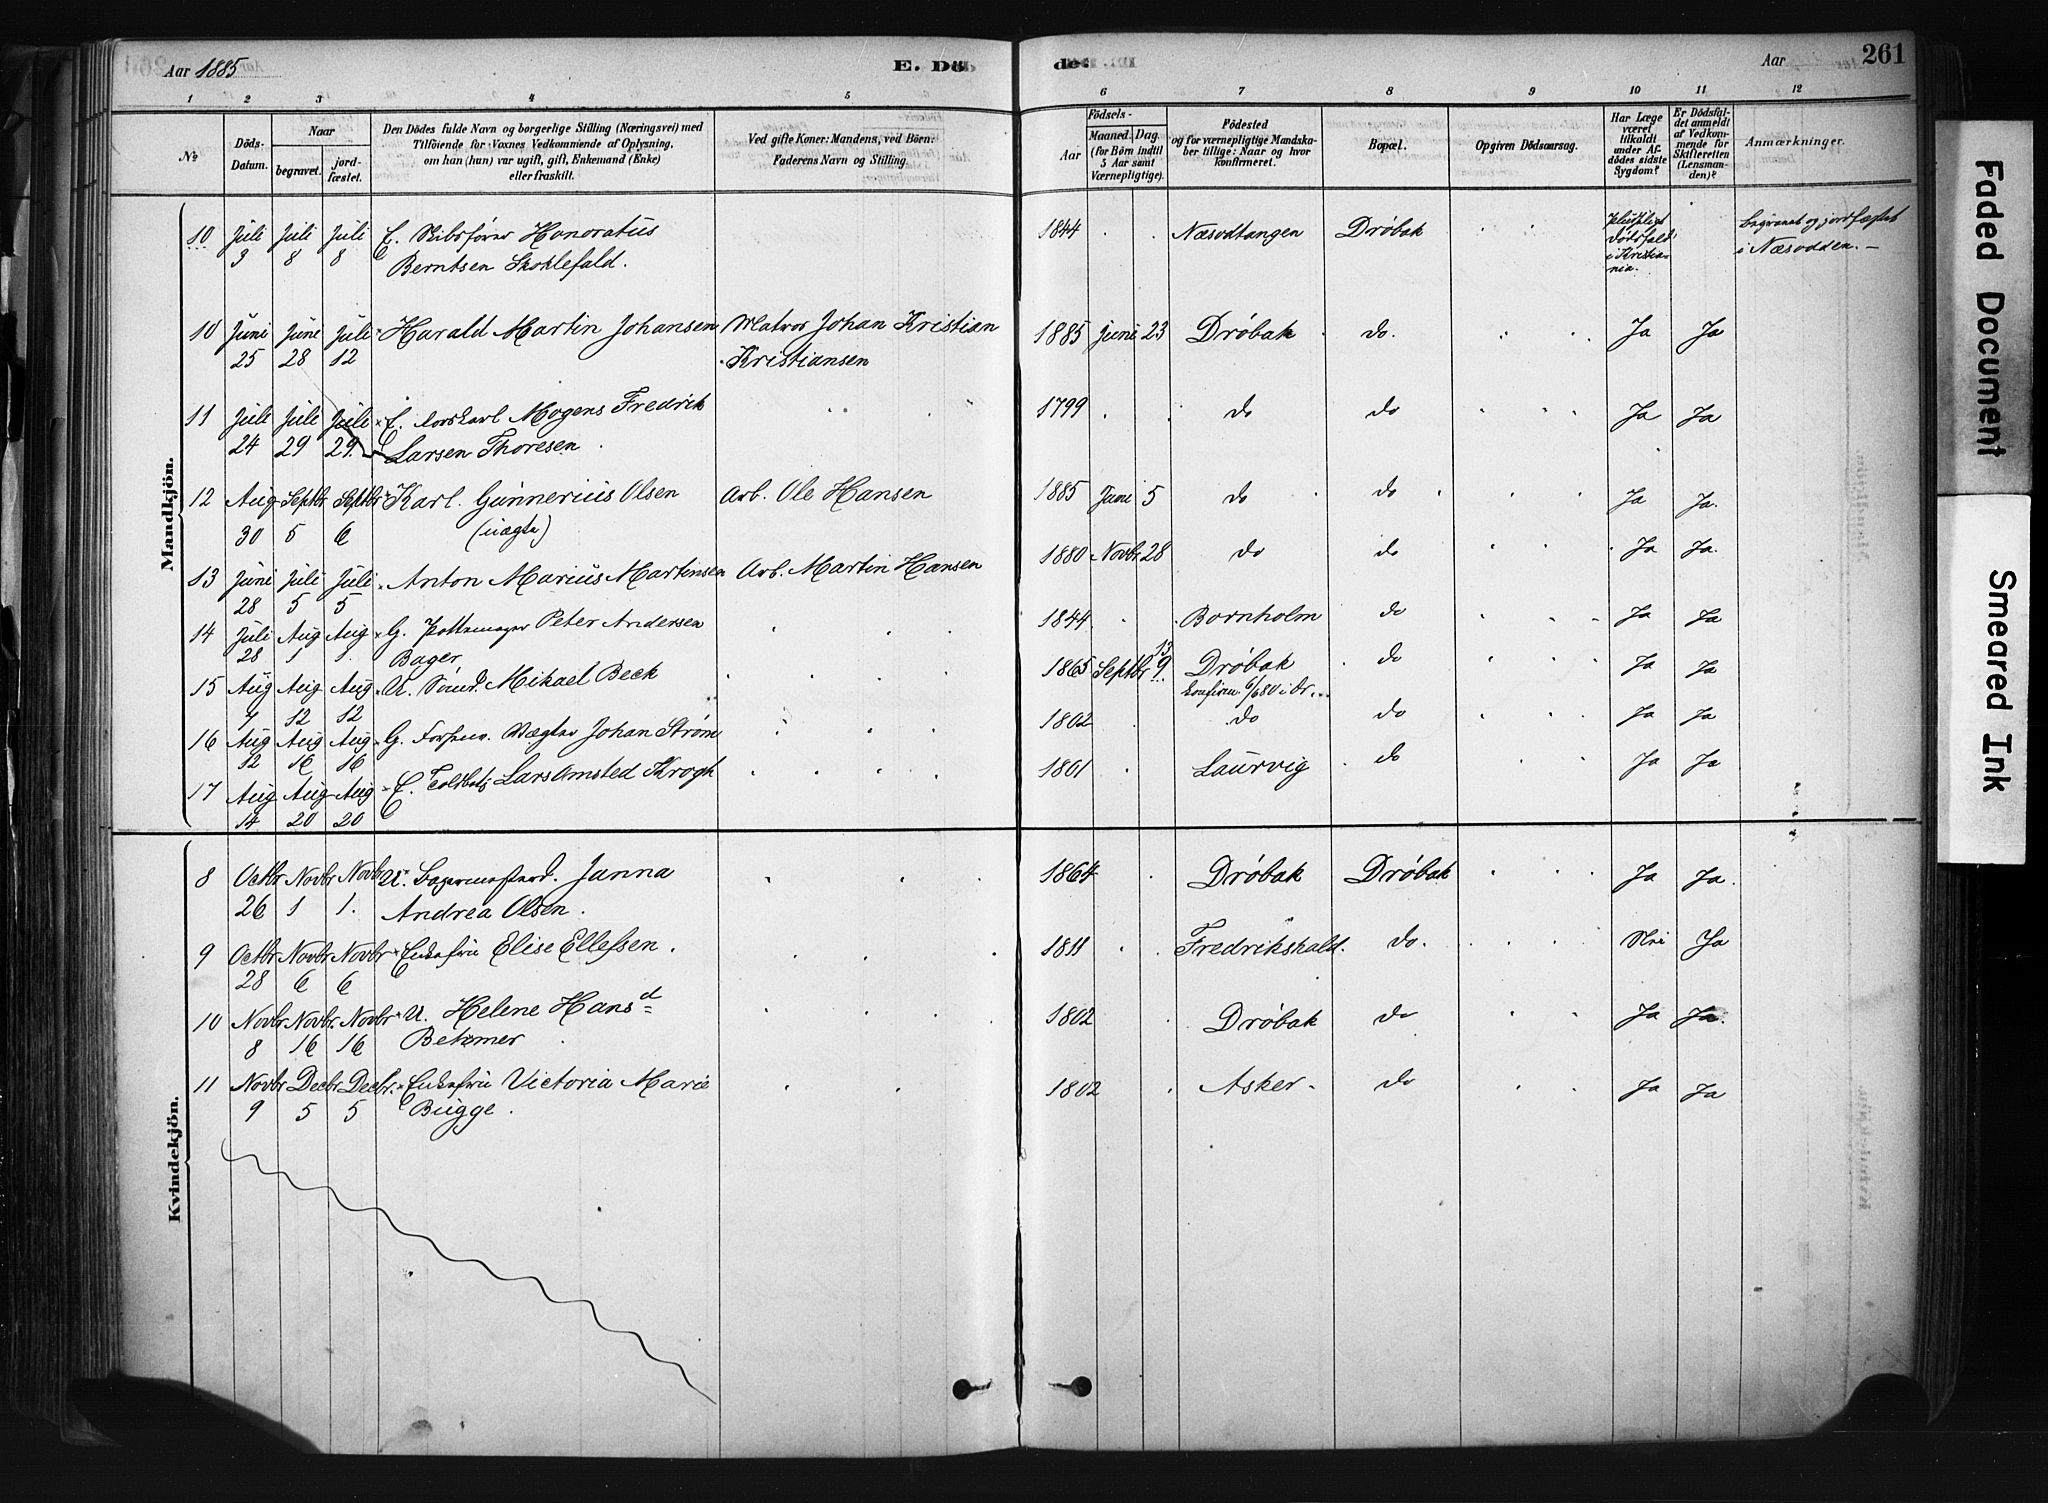 Aar 1885
E. Dö
de.
Aar
261
1 2 3 4 5 6 7 8 9 10 11 12
No
Döds-
Datum.
Naar
begravet.
jord-
fæstet.
Den Dödes fulde Navn og borgerlige Stilling (Næringsvei) med
Tilföiende for Voxnes Vedkommende af Oplysning,
om han (hun) var ugift, gift, Enkemand (Enke)
eller fraskilt.
Ved gifte Koner: Mandens, ved Börn:
Faderens Navn og Stilling.
Födsels-
Aar
Maaned. Dag.
(for Börn indtil
5 Aar samt
Værnepligtige).
Födested
og for værnepligtige Mandska-
ber tillige: Naar og hvor
konfirmeret.
Bopæl.
Opgiven Dödsaarsag.
Har Læge
været
tilkaldt
under Af-
dödes sidste
Sygdom?
Er Dödsfal-
det anmeldt
af Vedkom-
mende for
Skifteretten
(Lensman-
den)?
Anmærkninger.
Mandkjön.
10 Juli 3 Juli 8 Juli 8 E. Skibsfører Honoratus
Berntsen Skoklefald.
1844 Næsodtangen Drøbak
Pludseligt
Dødsfald
i Kristia-
nia.
Begravet og jordfæstet
i Næsodden.
10 Juni 25 Juni 28 Juli 12 Harald Martin Johansen Matros Johan Kristian
Kristiansen
1885 Juni 23 Drøbak do. Ja Ja
11 Juli 24 Juli 29 Juli 29. E. Mogens Fredrik
Larsen Thoresen
1799 do do Ja Ja
12 Aug 30 Septbr 5 Septbr 6 Karl Gunnerius Olsen Arb. Ole Hansen
(uægte)
1885 Juni 5 do do Ja Ja.
13 Juni 28 Juli 5 Juli 5 Anton Marius Martinsen Arb. Martin Hansen
1880 Novbr. 28 do do Ja Ja.
14 Juli 28 Aug 1 Aug 1. G. Pottemager Peter Andersen
Bager
1844 Bornholm do Ja Ja
15 Aug 7 Aug 12 Aug 12 U. Sømd. Mikael Beck
1865 Septbr 9 13 Drøbak do Ja Ja
konfirm. 6/6 80 i Dr.
16 Aug 12 Aug 16 Aug 16 G. Vægter Johan Strøm
1802 do do Ja Ja
17 Aug 14 Aug 20 Aug 20 E. Toldbetj. Lars Omsted Krogh
1801 Laurvig do Ja Ja
Kvindekjön.
8 Octbr 26 Novbr 1 Novbr 1. U. Bagermesterd. Janna
Andrea Olsen.
1864 Drøbak Drøbak Ja Ja.
9 Octbr 28 Novbr 6 Novbr 6 Enkefru Elise Ellefsen.
1811 Fredrikshald. do. Nei Ja
10 Novbr 8 Novbr. 16 Novbr 16 U. Helene Hansd
Betzmer
1802 Drøbak do Ja Ja.
11 Novbr 9 Decbr 5 Decbr. 5 Enkefru Victoria Marie
Bugge.
1802 Asker do Ja Ja
Faded Document
Smeared Ink